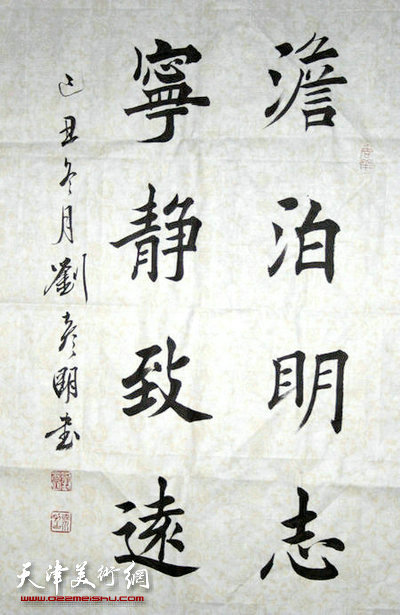 澹泊明志
寧静致遠
己丑冬月劉彦明书
天津美術網
www.022meishu.com